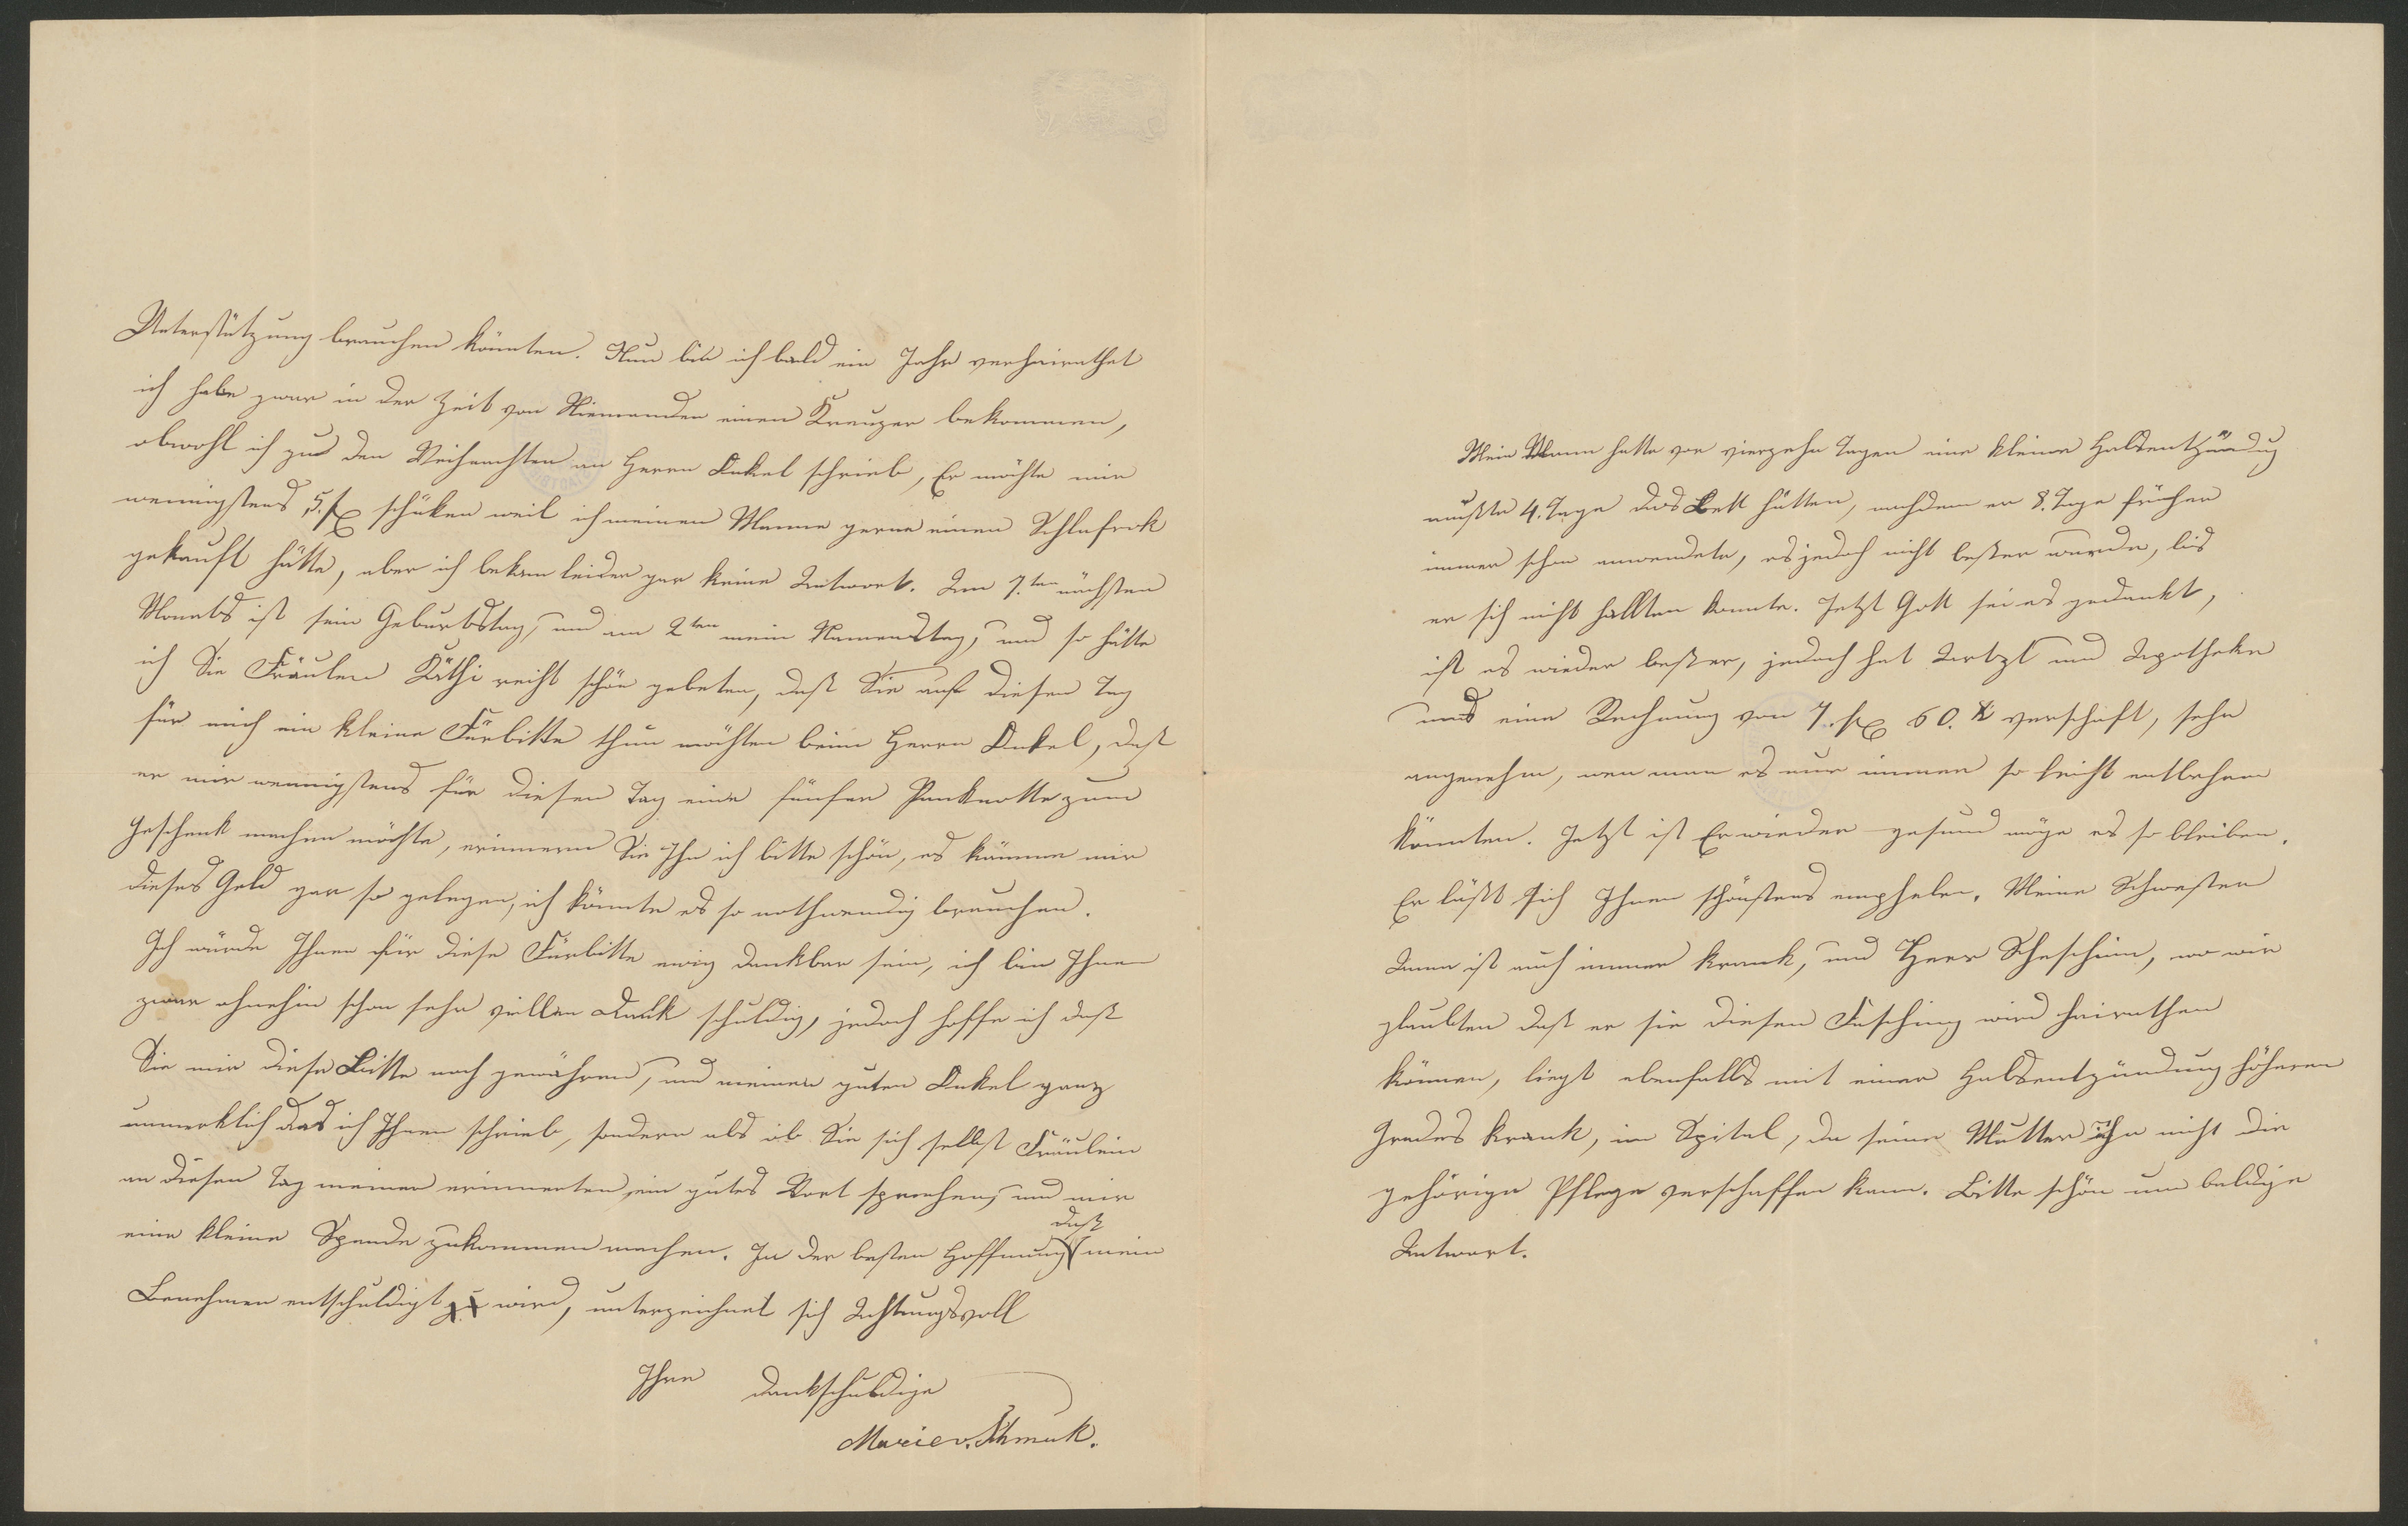 Unterstützung brauchen könnten. Nun bin ich bald ein Jahr verheirathet
ich habe zwar in der Zeit von Niemanden einen Kreuzer bekommen,
obwohl ich zu den Weihnachten an Herrn Onkel schrieb, Er möchte mir
wenigstens 5. fl schüken weil ich meinen Manne gerne einen Schlafrok
gekauft hätte, aber ich bekam leider gar keine Antwort. Am 7.ten nächsten
Monats ist sein Geburtstag, und am 2ten mein Namenstag, und so hätte
ich Sie Fräulen Käthi recht schön gebeten, daß Sie auf diesen Tag
für mich ein kleine Fürbitte thun möchten beim Herrn Onkel, daß
er mir wenigstens für diesen Tag eine fünfer Panknotte zum
Geschenk machen möchte, erinnern Sie Ihn ich bitte schön, es kämme mir
dieses Geld gar so gelegen, ich könnte es so nothwendig brauchen.
Ich würde Ihnen für diese Fürbitte ewig dankbar sein, ich bin Ihnen
zwar ohnehin schon sehr viellen Dank schuldig, jedoch hoffe ich daß
Sie mir diese Bitte noch gewähren, und meinen guten Onkel ganz
unmerklich das ich Ihnen schrieb, sondern als ob Sie sich selbst Fräulein
an diesen Tag meiner erinnerten, ein gutes Wort sprechen, und mir
eine kleine Spende zukommen machen. In der besten Hoffnung daß mein
Benehmen entschuldigt zu wird, unterzeichnet sich Achtungsvoll
Ihre dankschuldige
Marie v. Schmuk.
Mein Mann hatte vor vierzehn Tagen eine kleine Halsentzündug
mußte 4. Tage das Bett hütten, nachdem er 8. Tage früher
immer schon anwendete, es jedoch nicht beßer wurde, bis
er sich nicht hallten konnte. Jetzt Gott sei es gedankt,
ist es wieder beßer, jedoch hat Artzt und Apotheke
uns eine Rechnung von 7. fl 60. x verschaft, sehr
angenehm, wen man es nur immer so leicht entbehren
könnten. Jetzt ist Er wieder gesund möge es so bleiben.
Er läßt sich Ihnen schönstens emphelen. Meine Schwester
Anna ist auch immer krank, und Herr, wo wir
glaubten daß er sie diesen Fasching wird heirathen
können, liegt ebenfalls mit einer Halsentzündung höheren
Grades krank, im Spital, da seine Mutter ihn nicht die
gehörige Pflege verschaffen kann. Bitte schön um baldige
Antwort.